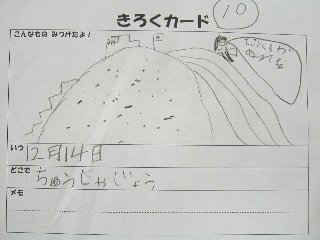 きろくカード
10
こんなもの みつけたよ！
いつ
12月14日
どこで
ちゅうしゃじょう
メモ